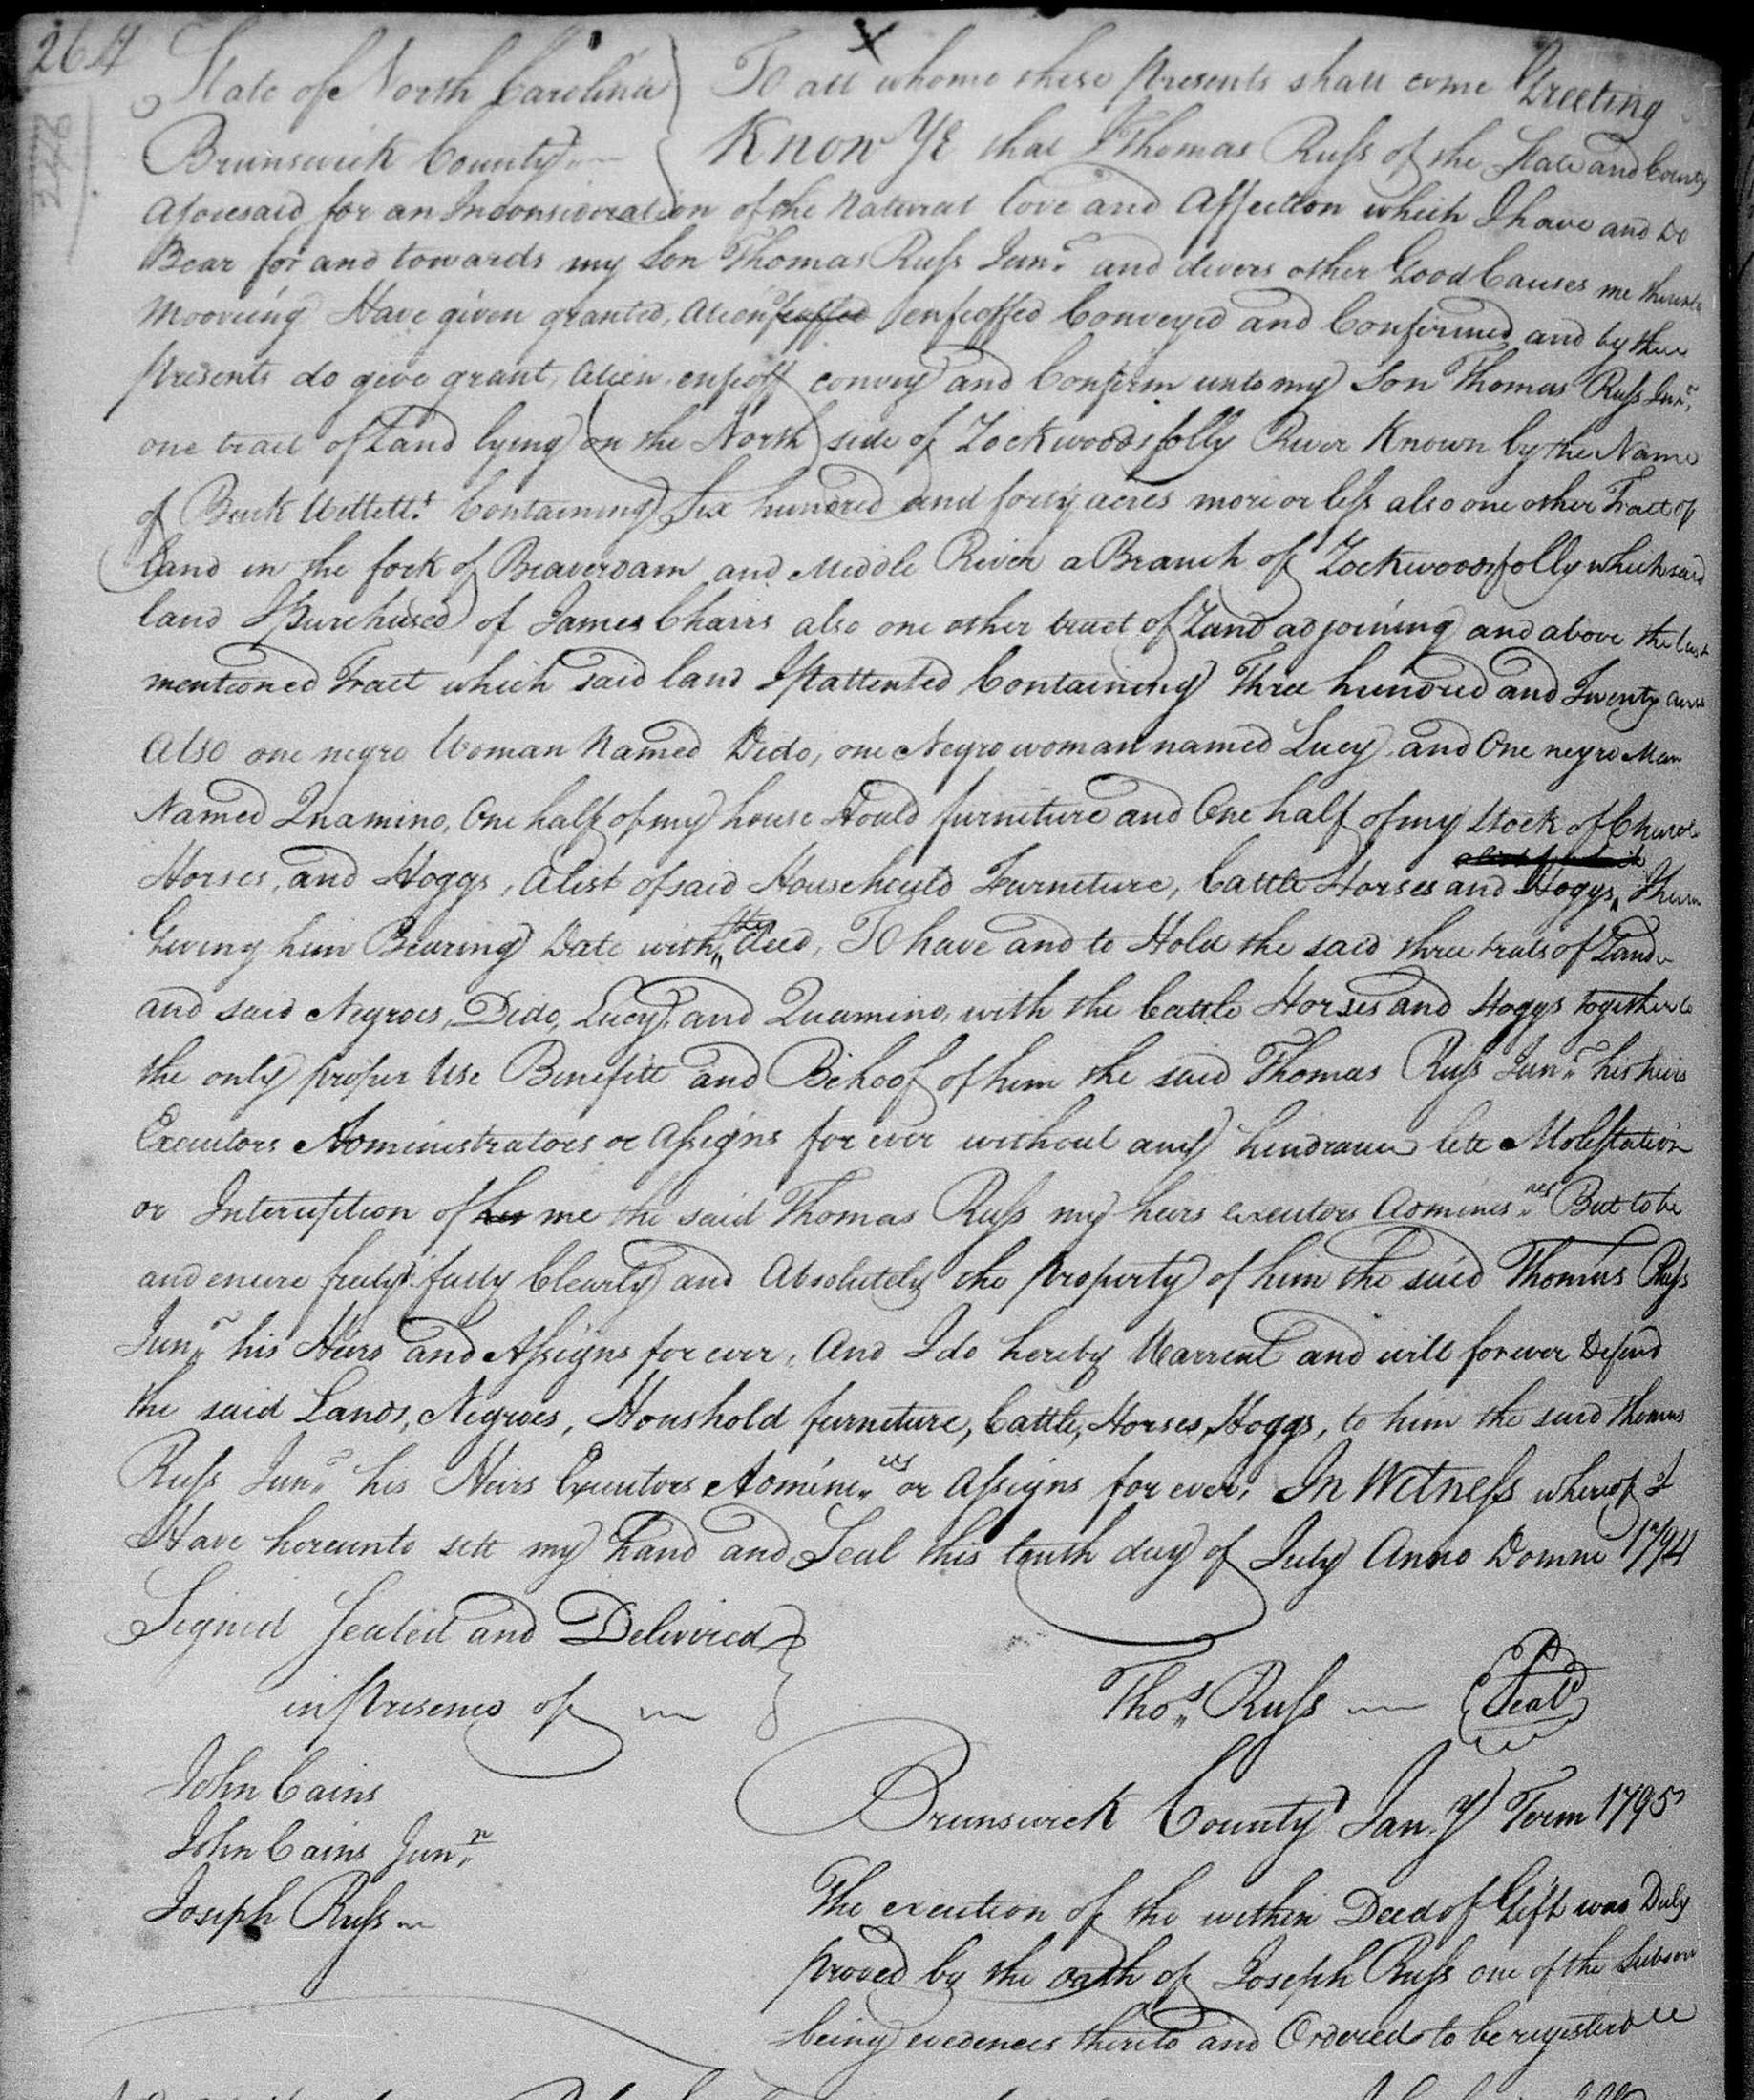 264
State of North Carolina } To all whome these presents shall come Greeting
Brunswick County } Know Ye that I Thomas Russ of the State and County
Aforesaid for an Inconsideration of the Natural love and Affection which I have and Do
Bear for and towards my Son Thomas Russ Junr and divers other Good Causes me thereunto
Mooveing Have given granted, Alien feoffed enfeoffed Conveyed and Confirmed and by these
presents do give grant, Alien, enfeoff convey and Confirm unto my Son Thomas Russ Junr,
one tract of Land lying on the North side of Lockwoodsfolly River Known by the Name
of Buck Willetts Containing Six hundred and forty acres more or less also one other Tract of
Land in the fork of Beaverdam and Middle River a Branch of Lockwoodsfolly which said
land I Purchased of James Charrs also one other tract of Land adjoining and above the last
mentioned Tract which said land I pattented Containing Three hundred and Twenty acres
Also one negro Woman Named Dido, one Negro woman named Lucy and One negro Man
Named Quamino, One half of my house Hould furniture and One half of my Stock of
Horses, and Hoggs, A list of said Househould Furneture, Cattle Horses and Hoggs,
Giveing him Bearing Date with the deed, To have and to Hold the said three trats of Land
and said Negroes, Dido, Lucy, and Quamino, with the Cattle Horses and Hoggs together to
the only proper Use Benefitt and Behoof of him the said Thomas Russ Junr his heirs
Executors Administrators or Assigns for ever without any hindrance lett Molestation
or Interuption of his me the said Thomas Russ my heirs executors Adminisres But to be
and enure freely fully Clearly and Absolutely the property of him the said Thomas Russ
Junr his Heirs and Assigns for ever, And I do hereby Warrent and will forever Defend
the said Lands, Negroes, Houshold furneture, Cattle, Horses, Hoggs, to him the said Thomas
Russ Junr his Heirs Executors Adminirs or Assigns for ever, In Witness whereof I
Have hereunto sett my hand and Seal this tenth day of July Anno Domini 1794
Signed Sealed and Delivered
in presence of
Thos Russ (Seal)
John Cains
John Cains Junr
Joseph Russ
Brunswick County Jany Term 1795
The execution of the within Deed of Gift was Duly
proved by the oath of Joseph Russ one of the Subscri
being evedences thereto and Ordered to be registerd